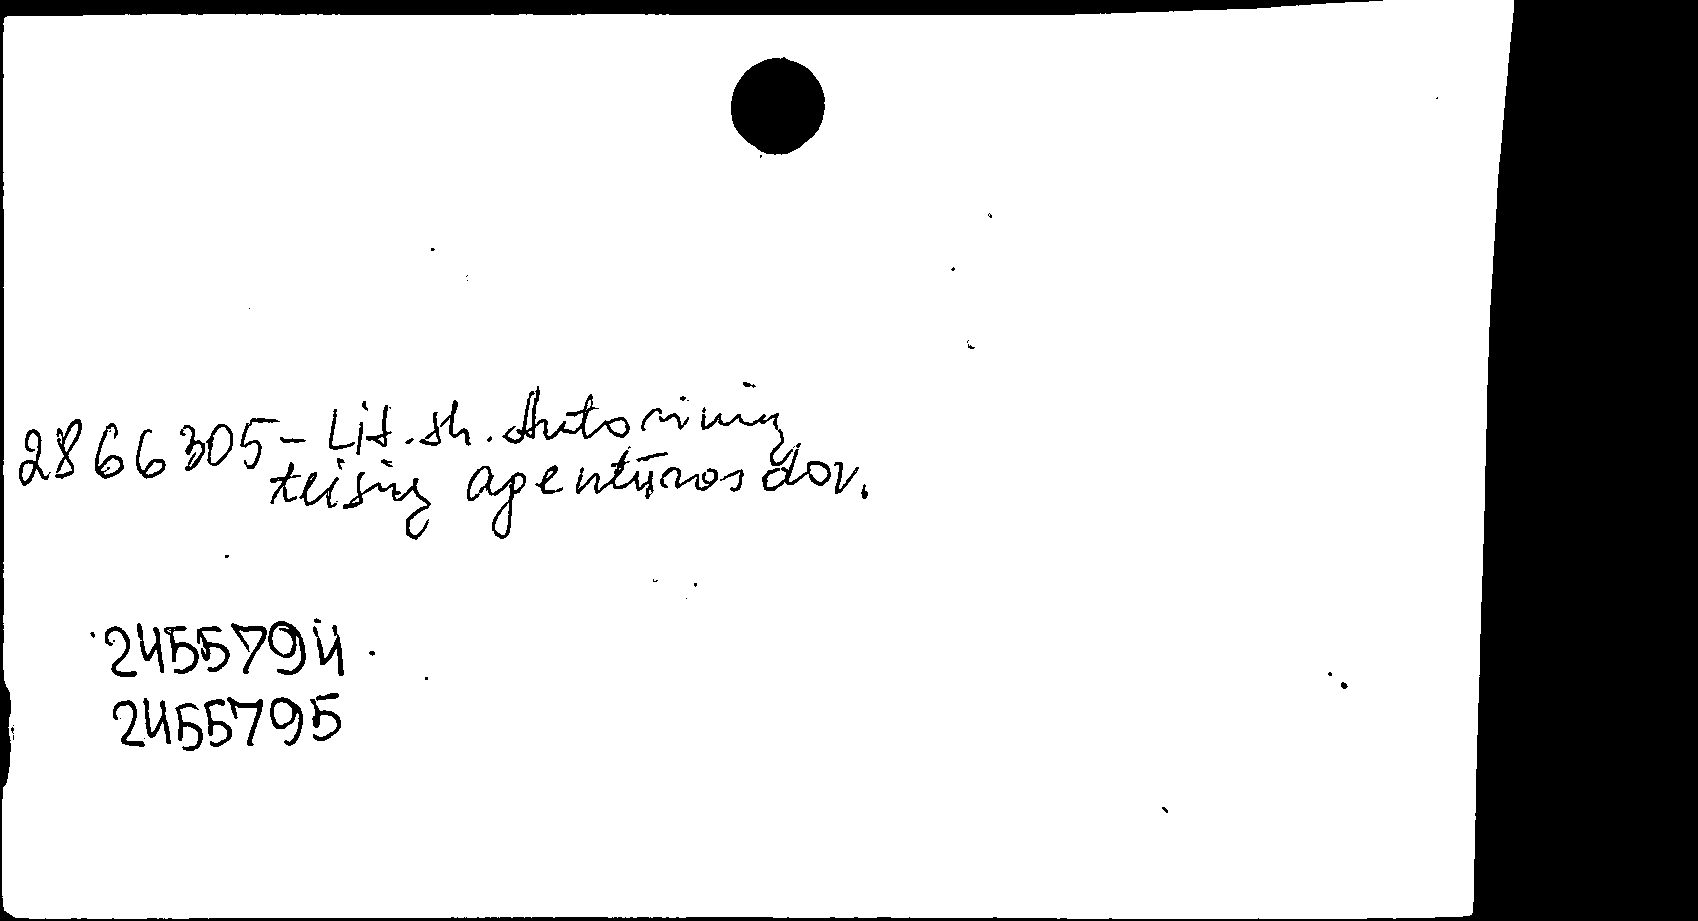 2866305 - Lit. sk. Autorinių
teisių agentūros dov.
2455794
2455795